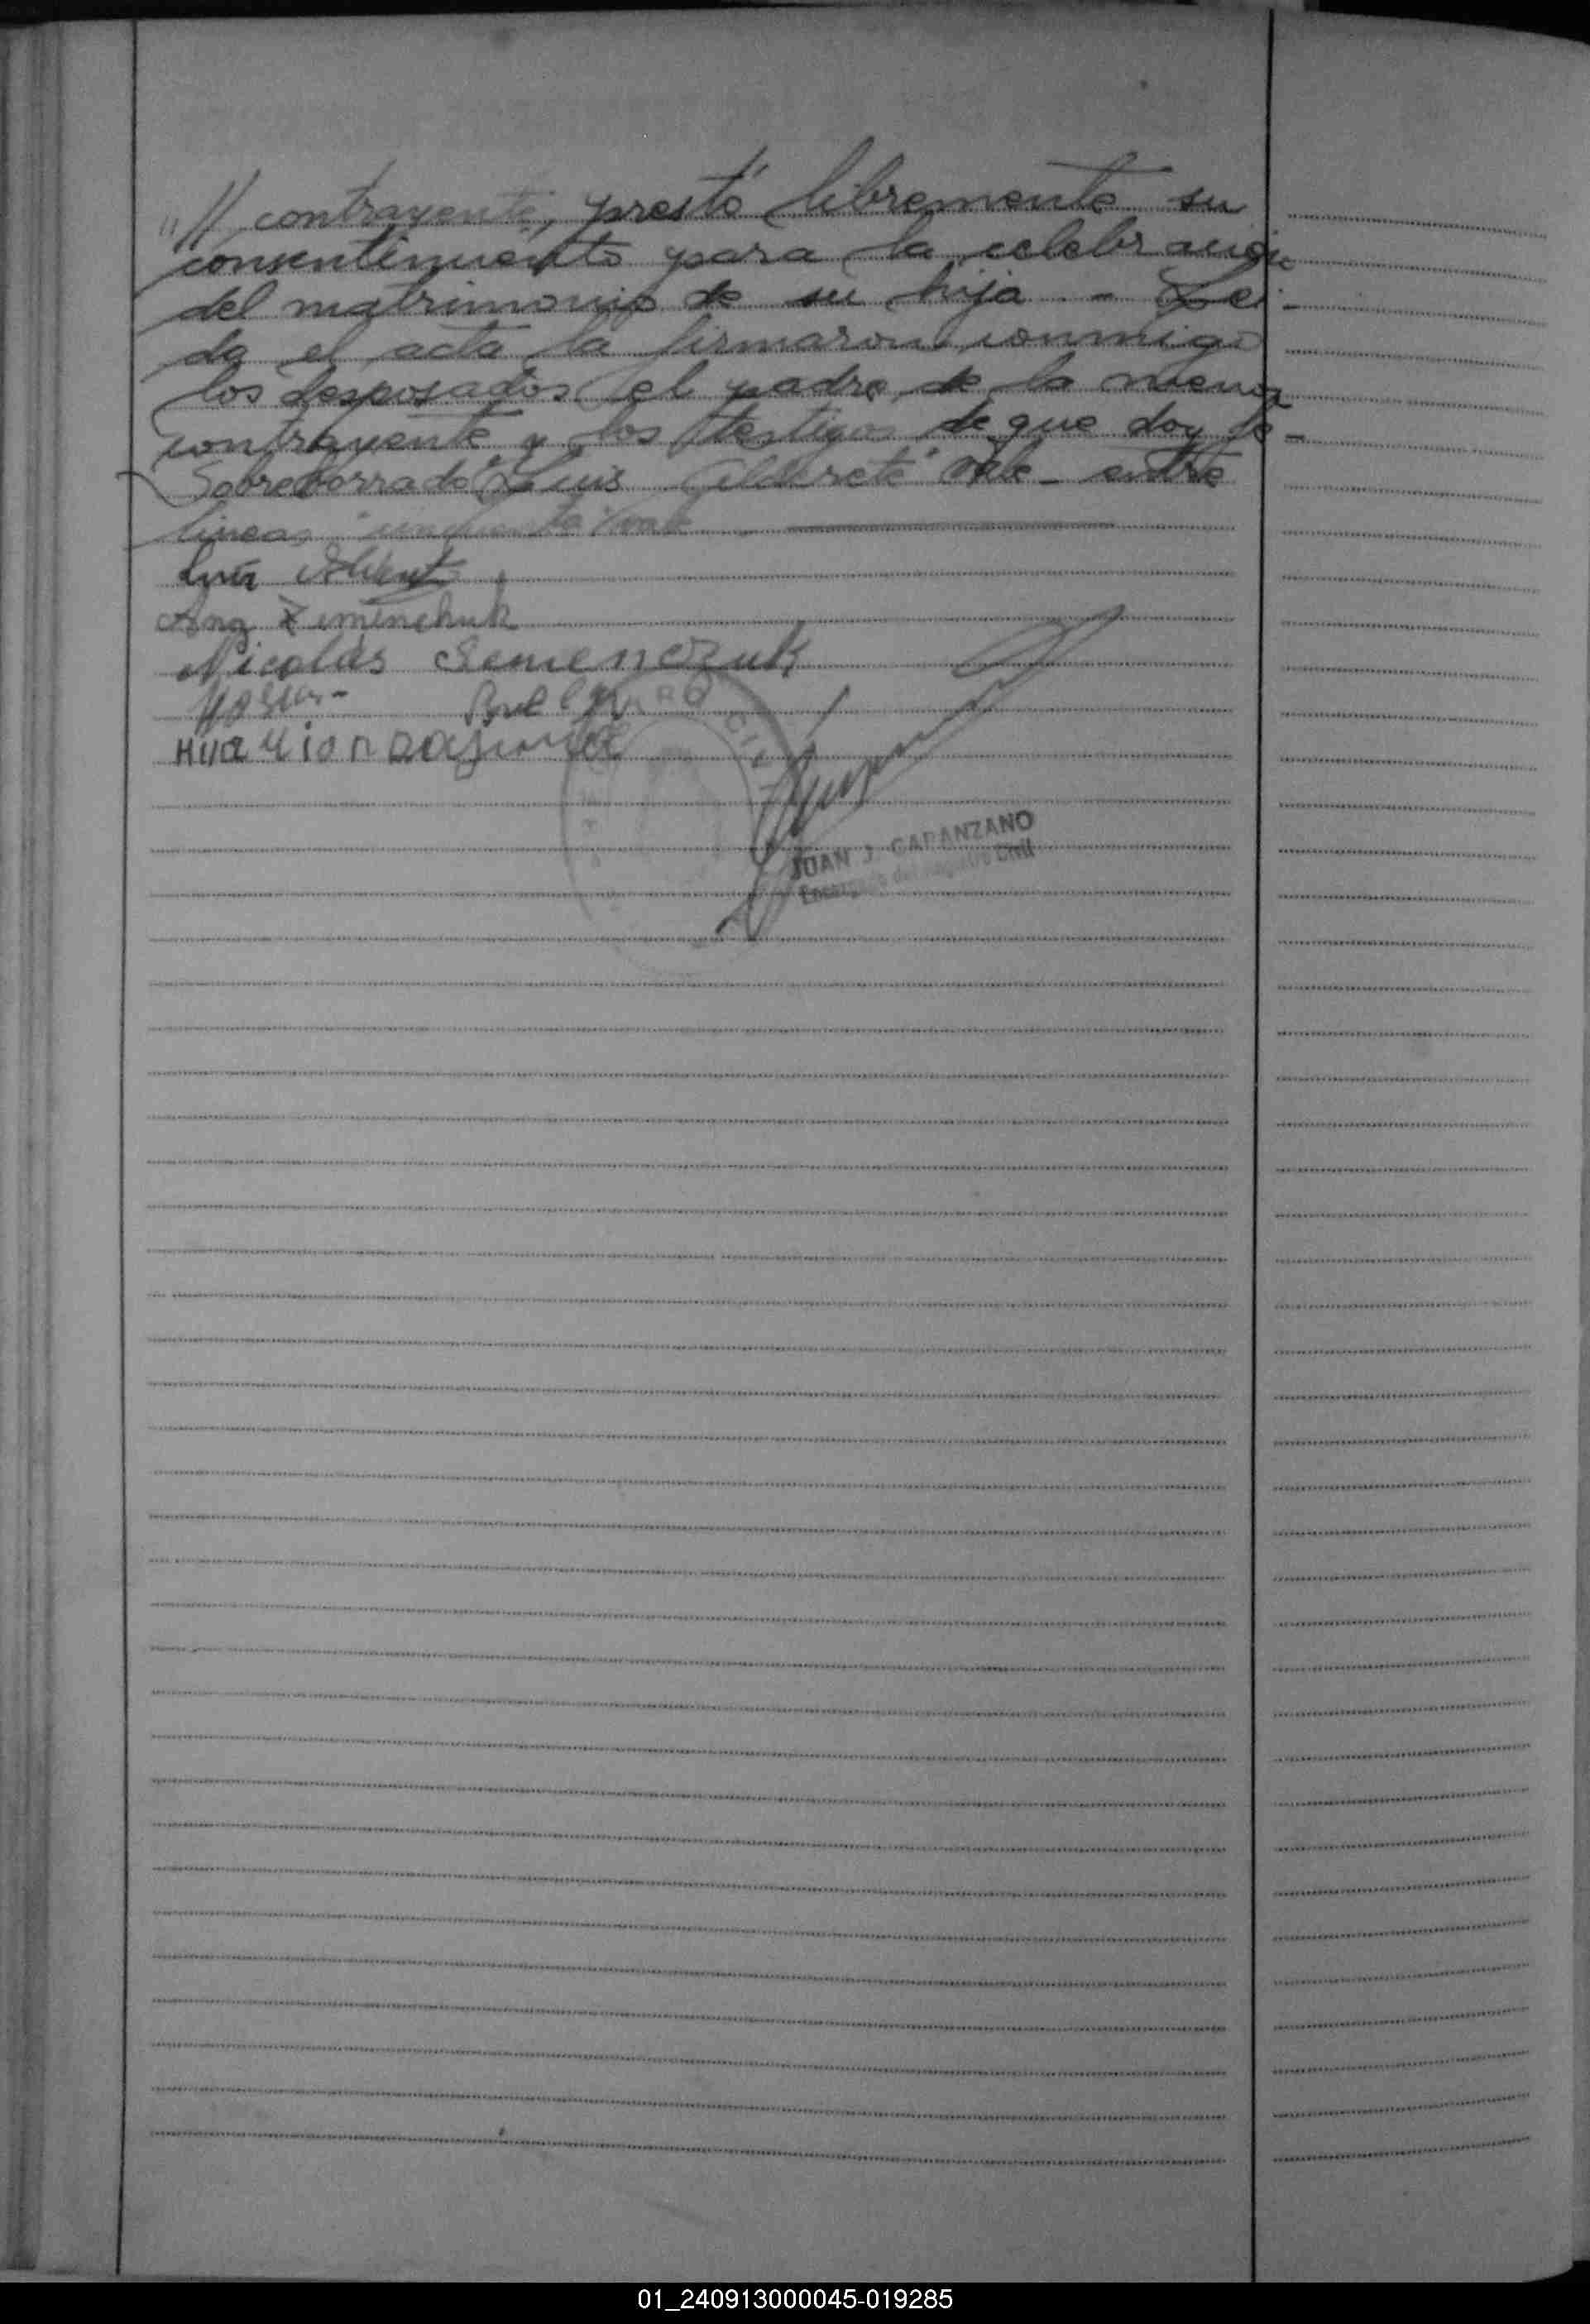 "// contrayente, prestó libremente su
consentimiento para la celebración
del matrimonio de su hija - Lei-
da el acta la firmaron conmigo
los desposados, el padre de la menor
contrayente y los testigos de que doy fe-
Sobre borrado "Luis Alderete" Vale - entre
lineas vale
Luis
Ana Zemenchuk
Nicolás Semenczuk
JUAN J. CAPANZANO
Encargado del Registro Civil
01_240913000045-019285